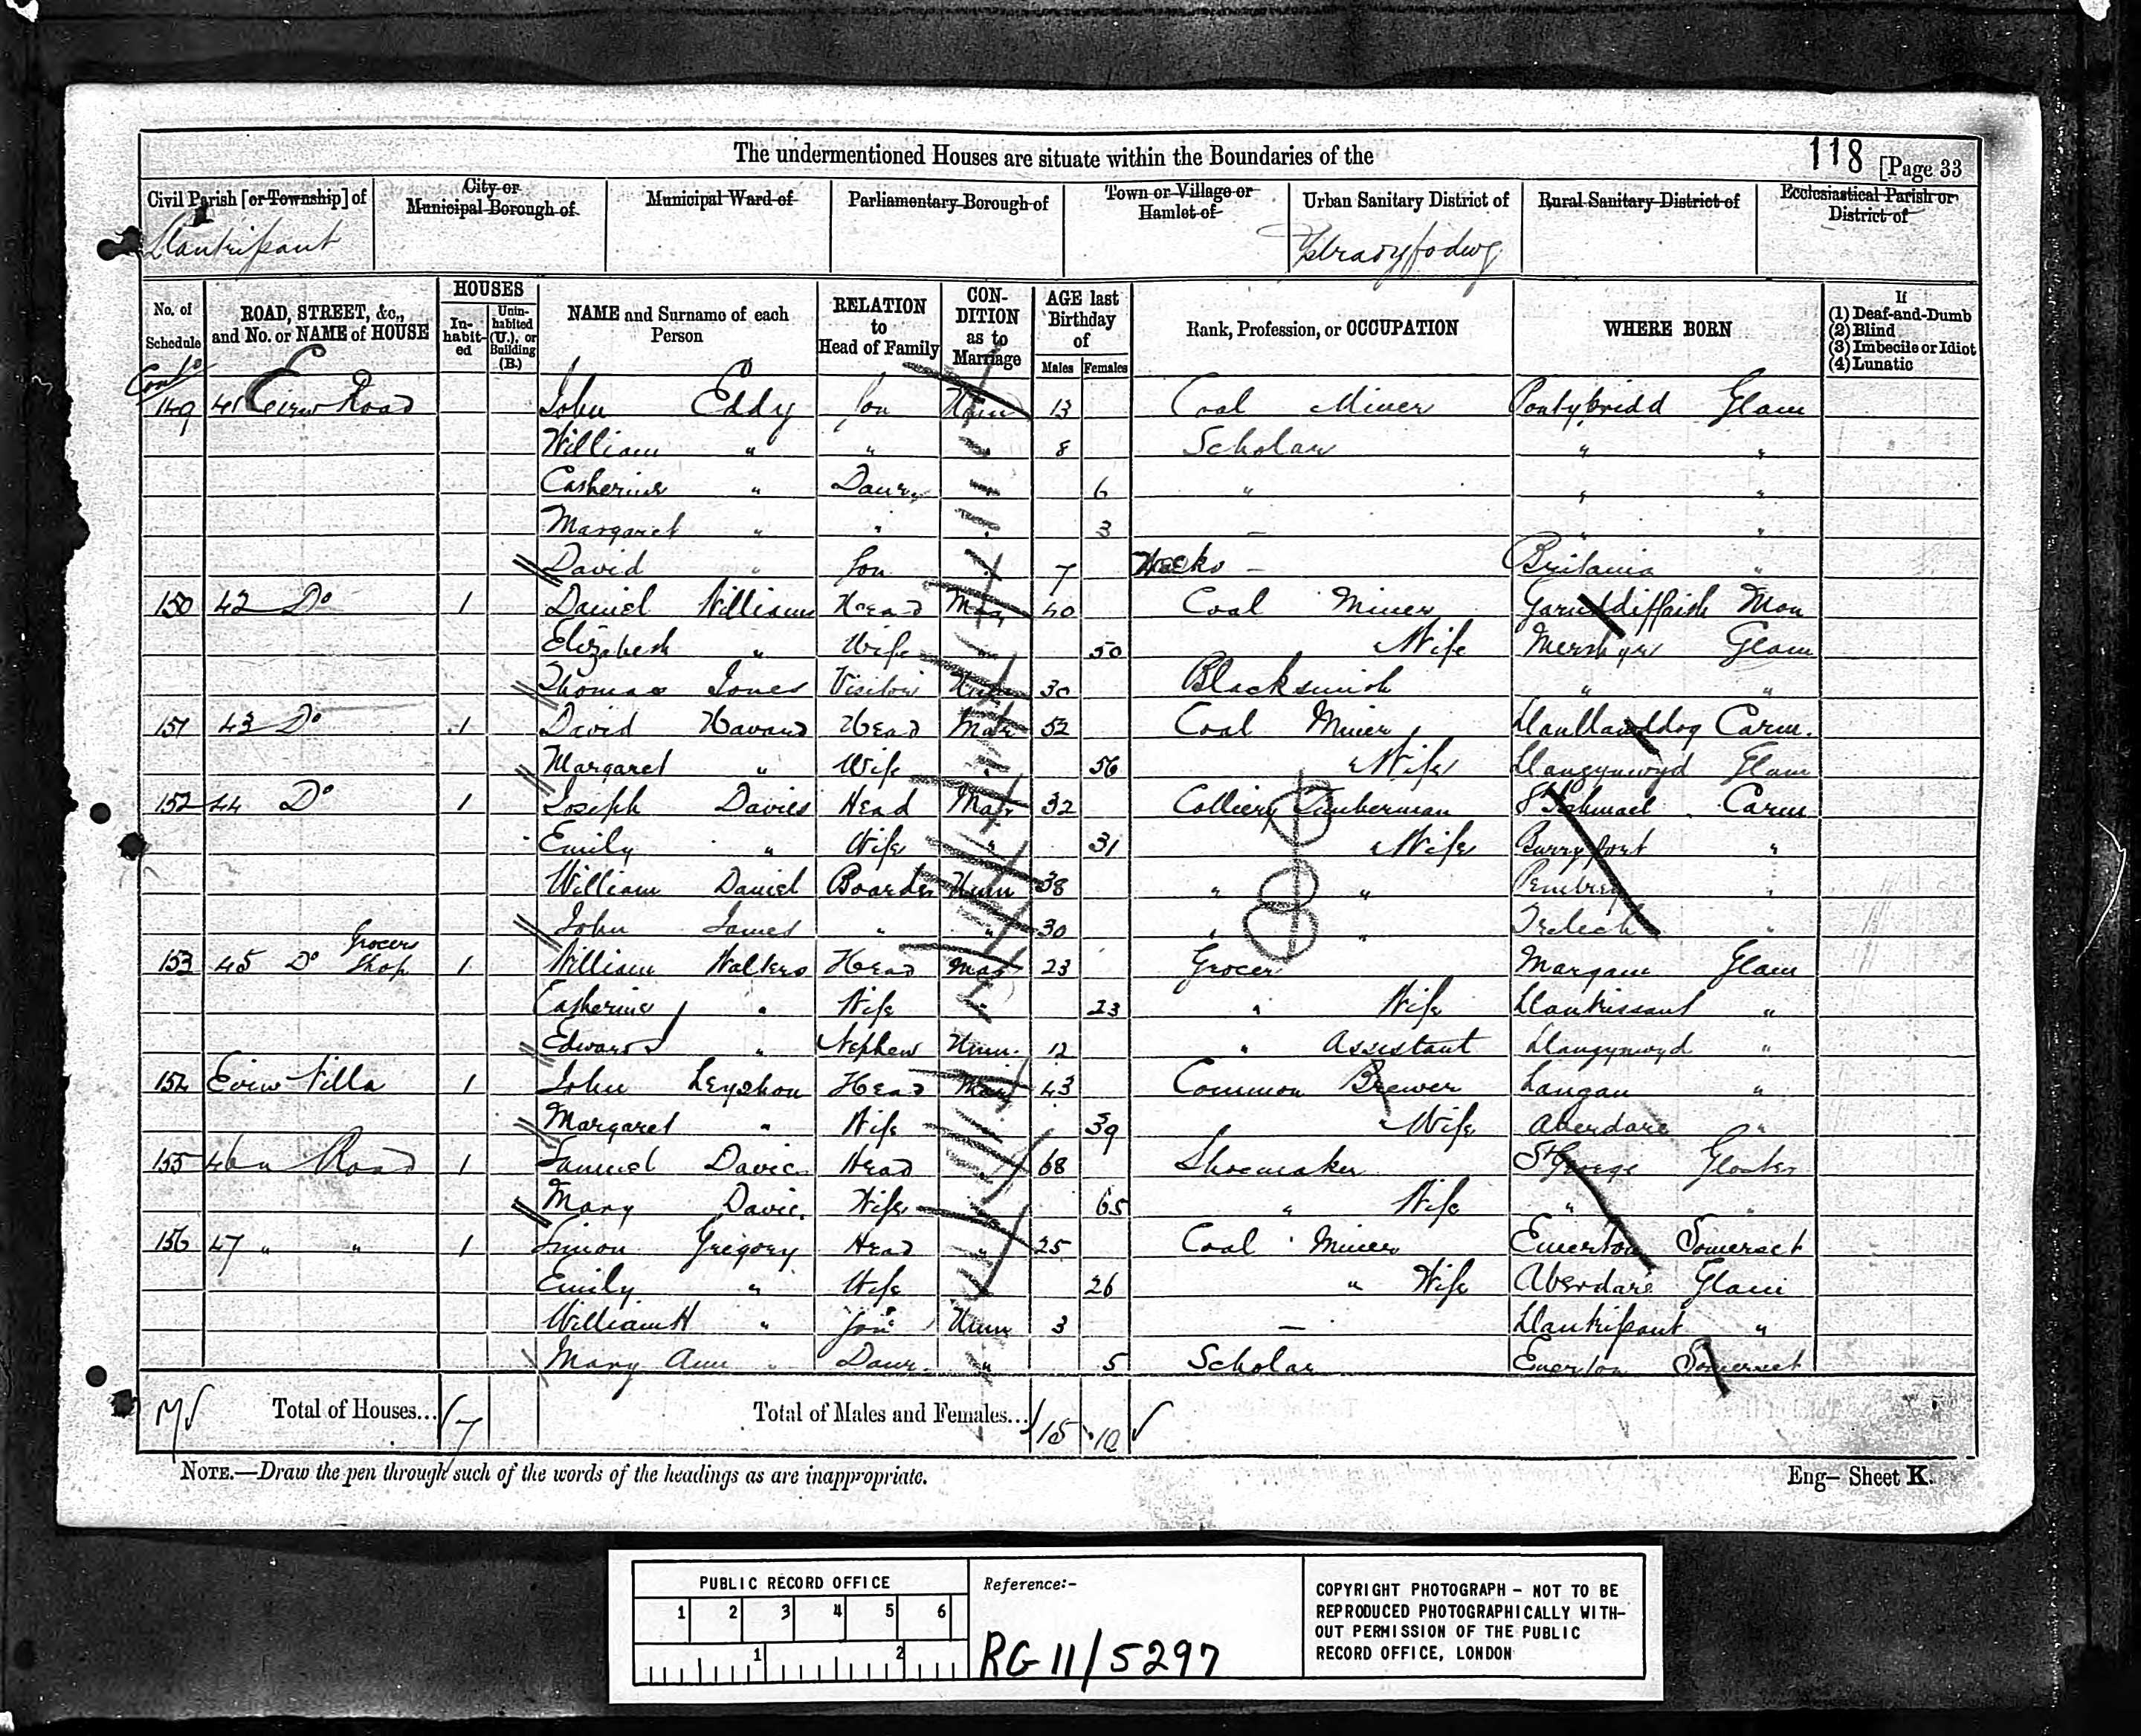 The undermentioned Houses are situate within the Boundaries of the
118 [Page 33
Civil Parish [or Township] of
City or Municipal Borough of
Municipal Ward of
Parliamentary Borough of
Town or Village or Hamlet of
Urban Sanitary District of
Rural Sanitary District of
Ecclesiastical Parish or District of
Llantrisant
Ystradyfodwg
No. of Schedule
ROAD, STREET, &c., and No. or NAME of HOUSE
HOUSES
In-habit-ed
Unin-habited (U.), or Building (B.)
NAME and Surname of each Person
RELATION to Head of Family
CON-DITION as to Marriage
AGE last Birthday of
Males Females
Rank, Profession, or OCCUPATION
WHERE BORN
If
(1) Deaf-and-Dumb
(2) Blind
(3) Imbecile or Idiot
(4) Lunatic
Contd
149 41 Eirw Road John Eddy Son Unm 13 Coal Miner Pontypridd Glam
William " " " 8 Scholar " "
Catherine " Daur " 6 " " "
Margaret " " " 3 — " "
David " Son " 7 Weeks — Britania "
150 42 Do 1 Daniel Williams Head Mar 40 Coal Miner Mon
Elizabeth " Wife " 50 " Wife Merthyr Glam
Thomas Jones Visitor Unm 30 Blacksmith " "
151 43 Do 1 David Havard Head Mar 52 Coal Miner Carm.
Margaret " Wife " 56 " Wife Llangynwyd Glam
152 44 Do 1 Joseph Davies Head Mar 32 Colliery Timberman St Ishmael Carm
Emily " Wife " 31 " Wife Burryport "
William Daniel Boarder Unm 38 " " Pembrey "
John James " " 30 " " Trelech "
153 45 Do Grocers Shop 1 William Walters Head Mar 23 Grocer Margam Glam
Catherine " Wife " 23 " Wife Llantrissant "
Edward " Nephew Unm. 12 " Assistant Llangynwyd "
154 Eirw Villa 1 John Leyshon Head Mar 43 Common Brewer Langan "
Margaret " Wife " 39 " Wife Aberdare "
155 46 Road 1 Samuel Davic Head " 68 Shoemaker St George Gloster
Mary Davic. Wife " 65 " Wife " "
156 47 " " 1 Simon Gregory Head " 25 Coal Miner Emerton Somerset
Emily " Wife " 26 " Wife Aberdare Glam
William H " Son Unm 3 — Llantrisant "
Mary Ann " Daur. " 5 Scholar Emerton Somerset
Total of Houses... 7
Total of Males and Females... 15 10
NOTE.—Draw the pen through such of the words of the headings as are inappropriate.
Eng— Sheet K.
PUBLIC RECORD OFFICE
1 2 3 4 5 6
1 2
Reference:-
RG 11/5297
COPYRIGHT PHOTOGRAPH - NOT TO BE
REPRODUCED PHOTOGRAPHICALLY WITH-
OUT PERMISSION OF THE PUBLIC
RECORD OFFICE, LONDON